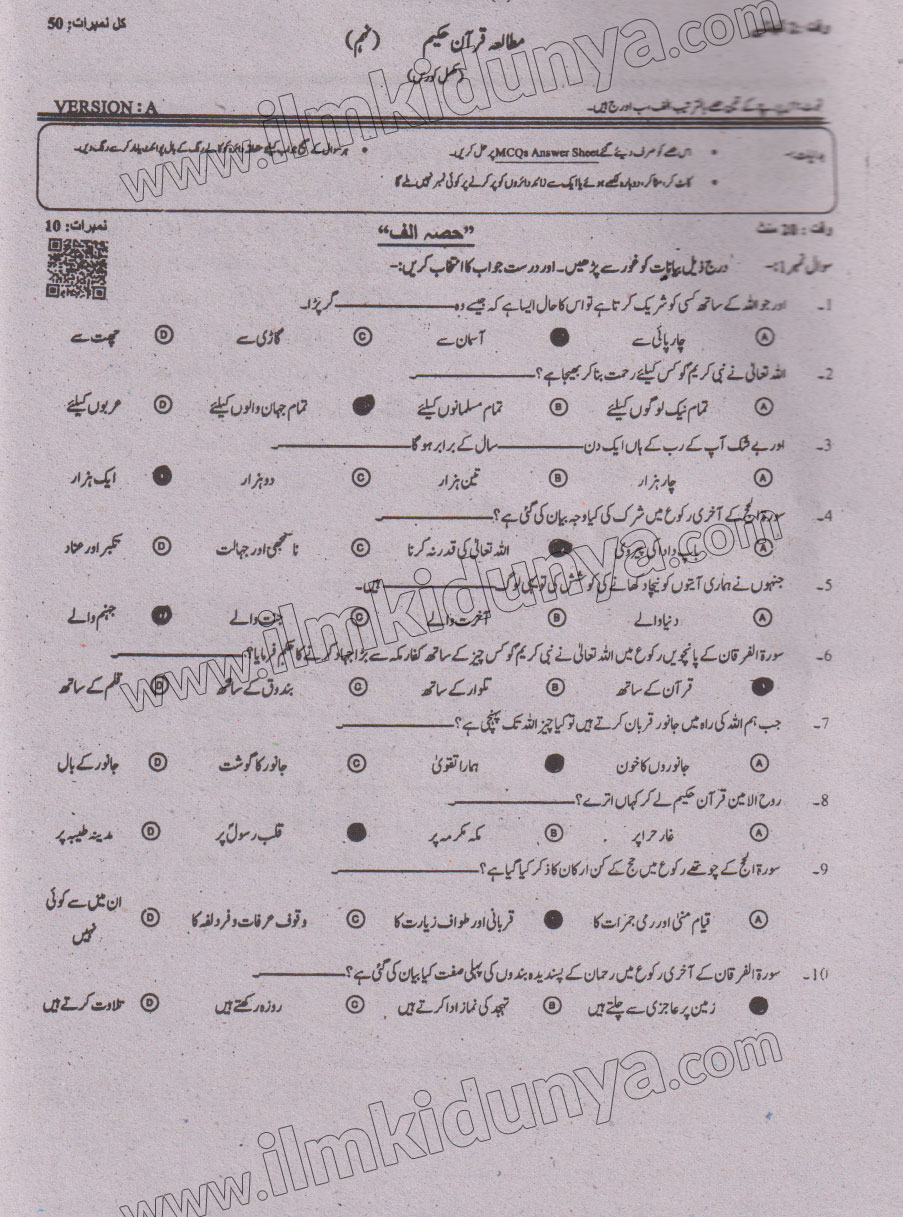 کل نمبرات: 50
مطالعہ قرآن حکیم (نہم)
(مکمل کورس)
VERSION : A
اس حصے کو صرف دیئے گئے MCQs Answer Sheet پر حل کریں۔
نمبرات: 10
"حصہ الف"
وقت : 20 منٹ
سوال نمبر1:- درج ذیل بیانات کو غور سے پڑھیں۔ اور درست جواب کا انتخاب کریں:-
1۔ اور جو اللہ کے ساتھ کسی کو شریک کرتا ہے تو اس کا حال ایسا ہے کہ جیسے وہ ــــــــــــ گر پڑا۔
A چارپائی سے آسمان سے C گاڑی سے D چھت سے
2۔ اللہ تعالیٰ نے نبی کریمؐ کو کس کیلئے رحمت بنا کر بھیجا ہے؟ ــــــــــــ۔
A تمام نیک لوگوں کیلئے B تمام مسلمانوں کیلئے تمام جہان والوں کیلئے D عربوں کیلئے
3۔ اور بے شک آپ کے رب کے ہاں ایک دن ــــــــــــ سال کے برابر ہوگا ــــــــــــ۔
A چار ہزار B تین ہزار C دو ہزار ایک ہزار
4۔ سورۃ الحج کے آخری رکوع میں شرک کی کیا وجہ بیان کی گئی ہے؟ ــــــــــــ۔
A باپ دادا کی پیروی اللہ تعالیٰ کی قدر نہ کرنا C ناسمجھی اور جہالت D تکبر اور عناد
5۔ جنہوں نے ہماری آیتوں کو نیچا دکھانے کی کوشش کی تو یہی لوگ ــــــــــــ ہیں۔
A دنیا والے B آخرت والے C جنت والے جہنم والے
6۔ سورۃ الفرقان کے پانچویں رکوع میں اللہ تعالیٰ نے نبی کریمؐ کو کس چیز کے ساتھ کفار مکہ سے بڑا جہاد کرنے کا حکم فرمایا؟ ــــــــــــ۔
قرآن کے ساتھ B تلوار کے ساتھ C بندوق کے ساتھ D قلم کے ساتھ
7۔ جب ہم اللہ کی راہ میں جانور قربان کرتے ہیں تو کیا چیز اللہ تک پہنچتی ہے؟ ــــــــــــ۔
A جانوروں کا خون ہمارا تقویٰ C جانور کا گوشت D جانور کے بال
8۔ روح الامین قرآن حکیم لے کر کہاں اترے؟ ــــــــــــ۔
A غار حرا پر B مکہ مکرمہ پر قلب رسولؐ پر D مدینہ طیبہ پر
9۔ سورۃ الحج کے چوتھے رکوع میں حج کے کن ارکان کا ذکر کیا گیا ہے؟ ــــــــــــ۔
A قیام منیٰ اور رمی جمرات کا قربانی اور طواف زیارت کا C وقوف عرفات و مزدلفہ کا D ان میں سے کوئی نہیں
10۔ سورۃ الفرقان کے آخری رکوع میں رحمان کے پسندیدہ بندوں کی پہلی صفت کیا بیان کی گئی ہے؟ ــــــــــــ۔
زمین پر عاجزی سے چلتے ہیں B تہجد کی نماز ادا کرتے ہیں C روزہ رکھتے ہیں D تلاوت کرتے ہیں
www.ilmkidunya.com
www.ilmkidunya.com
www.ilmkidunya.com